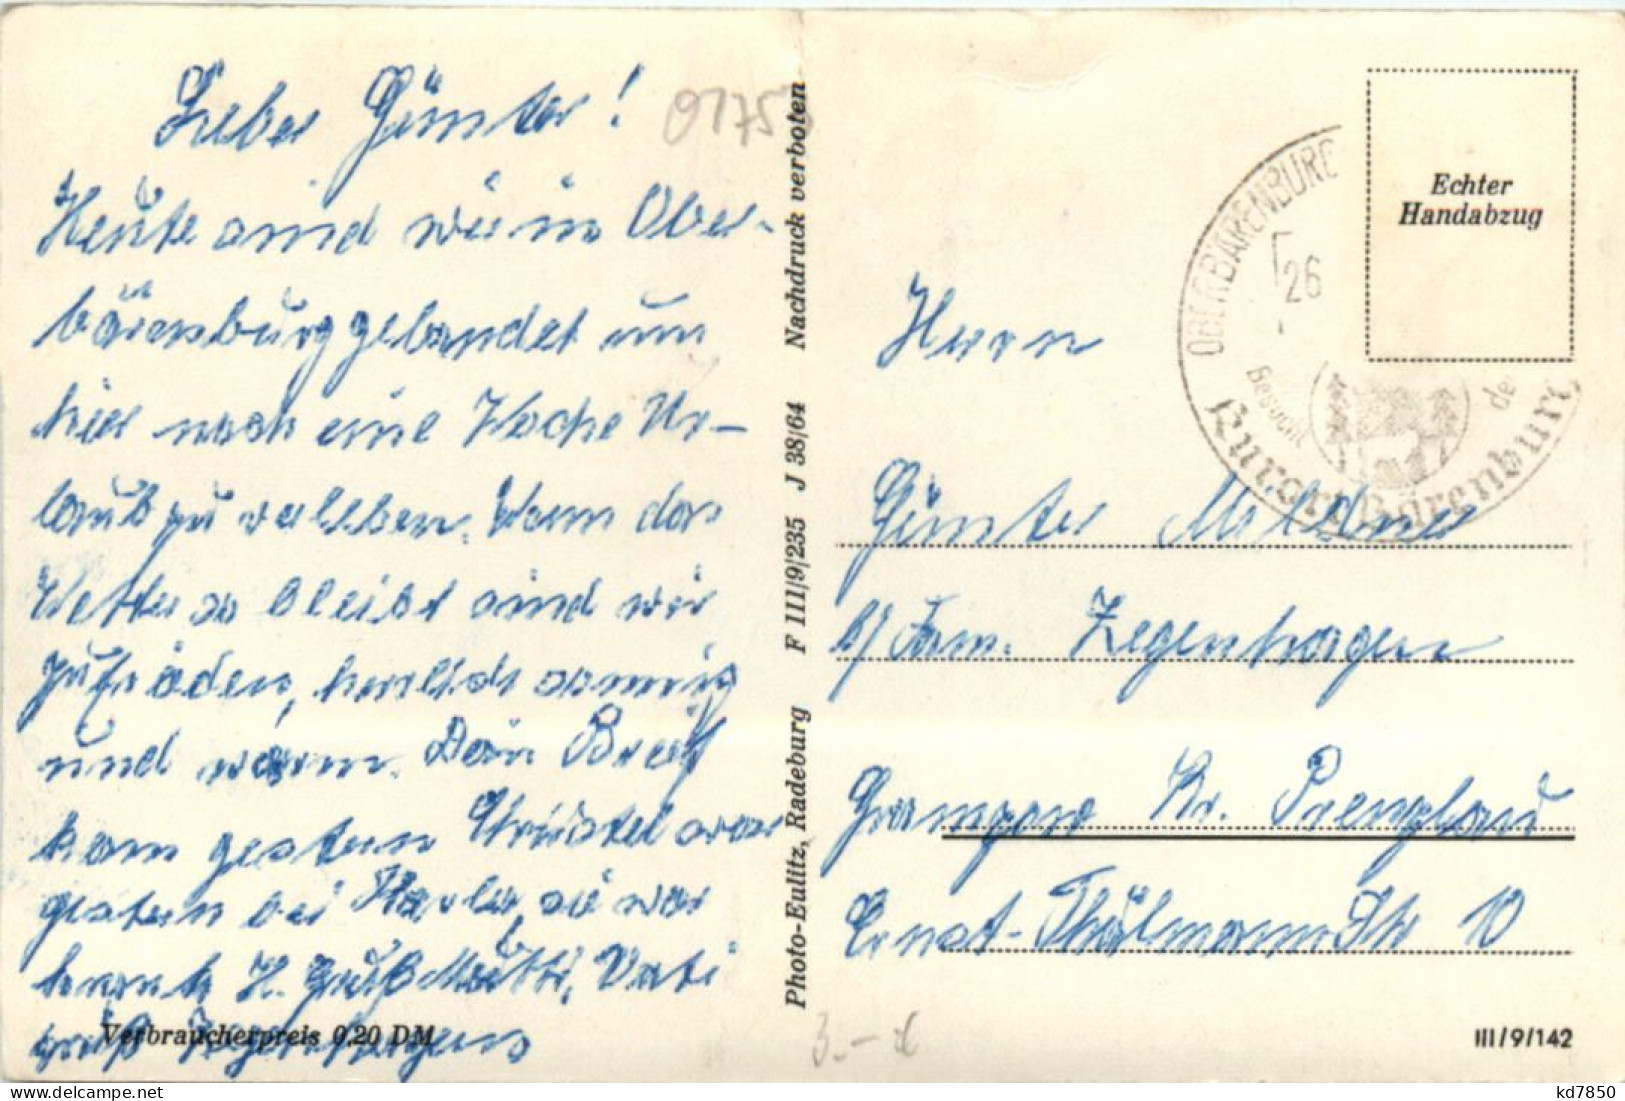 Lieber Günter!
01755
Heute sind wir in Ober-
bärenburg gelandet um
hier noch eine Woche Ur-
laub zu verleben. Wenn das
Wetter so bleibt sind wir
zufrieden, herrlich sonnig
und warm. Dein Brief
kam gestern Christel war
gestern bei Karla, sie war
krank H. Gruß Mutti, Vati
grüß Zegenhagens
Verbraucherpreis 0,20 DM
Photo-Eulitz, Radeburg F III/9/235 J 38/64 Nachdruck verboten
Echter
Handabzug
OBERBÄRENBURG
26
Besucht de
Kurort Bärenburg
Herrn
Günter Meldner
b/ Fam. Zegenhagen
Gramzow Kr. Prenzlau
Ernst-Thälmann Str 10
3.-
III/9/142
kd7850